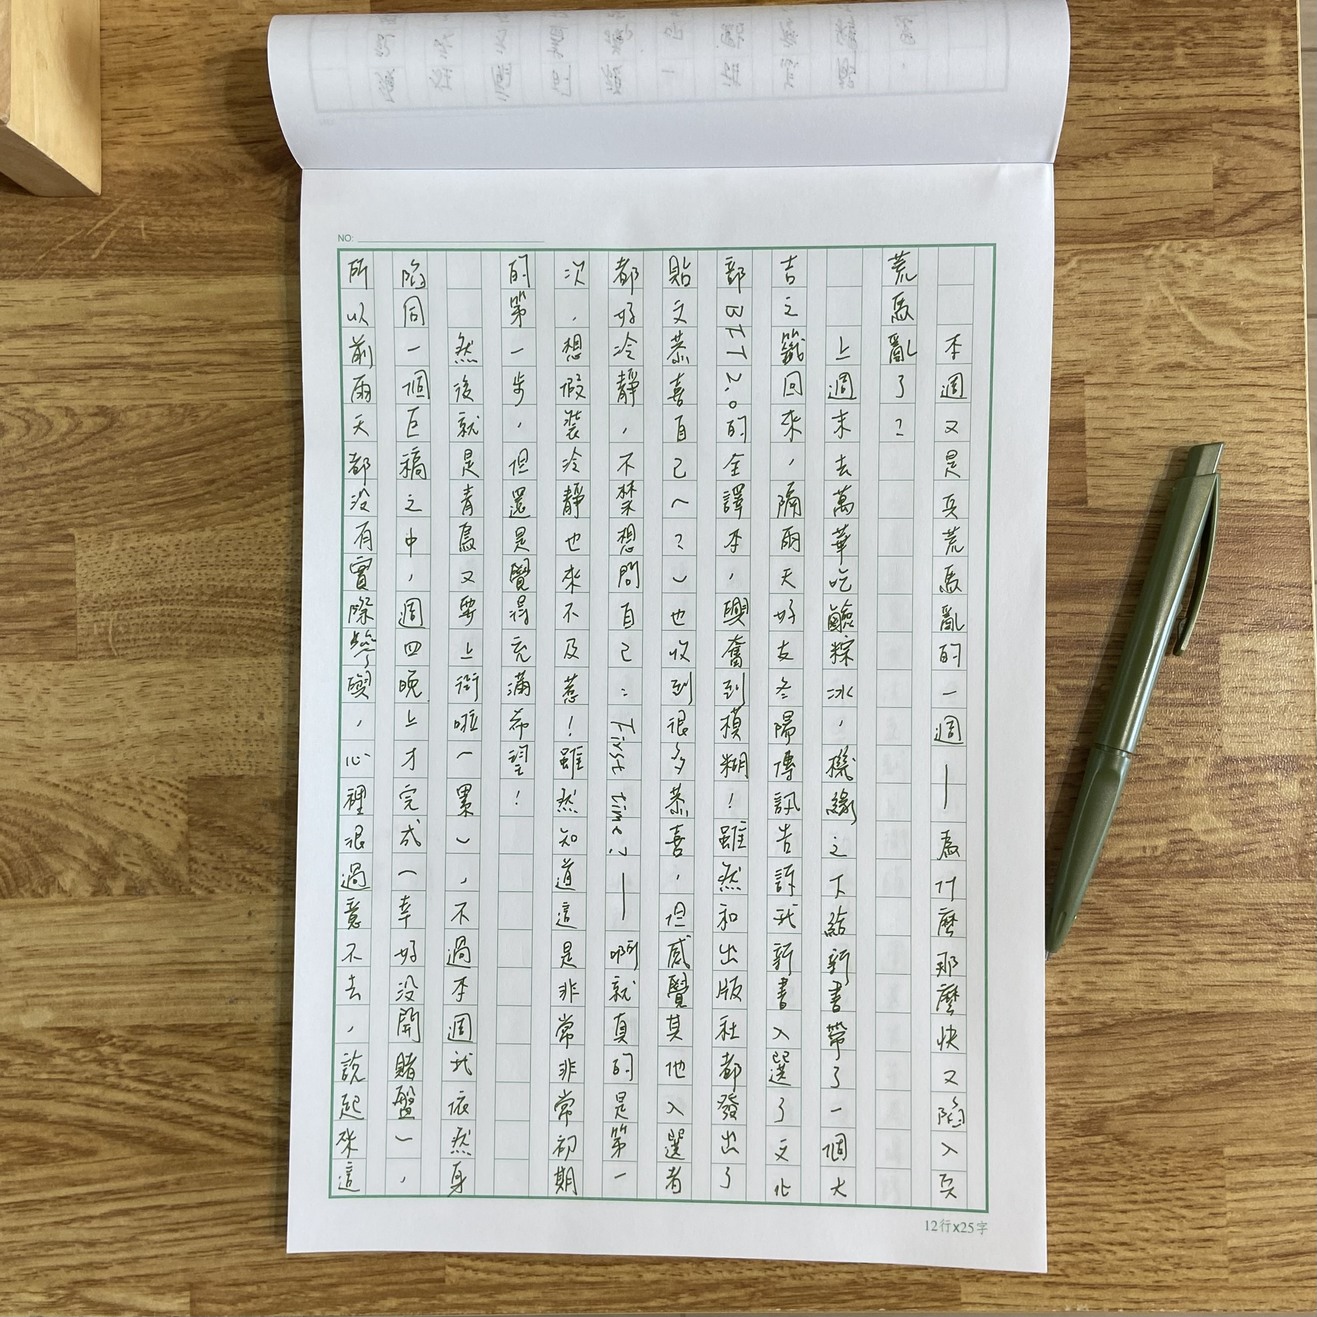 NO:
本週又是兵荒馬亂的一週—為什麼那麼快又陷入兵
荒馬亂了?
上週末去萬華吃鹼粽冰，機緣之下給新書帶了一個大
吉之籤回來，隔兩天好友冬陽傳訊告訴我新書入選了文化
部BFT2.0的全譯本，興奮到模糊!雖然和出版社都發出了
貼文恭喜自己(?)也收到很多恭喜，但感覺其他入選者
都好冷靜，不禁想問自己:First time?—啊就真的是第一
次，想假裝冷靜也來不及惹!雖然知道這是非常非常初期
的第一步，但還是覺得充滿希望!
然後就是青鳥又要上街啦(累)，不過本週我依然身
陷同一個巨稿之中，週四晚上才完成(幸好沒開賭盤)，
所以前兩天都沒有實際參與，心裡很過意不去，說起來這
12行x25字